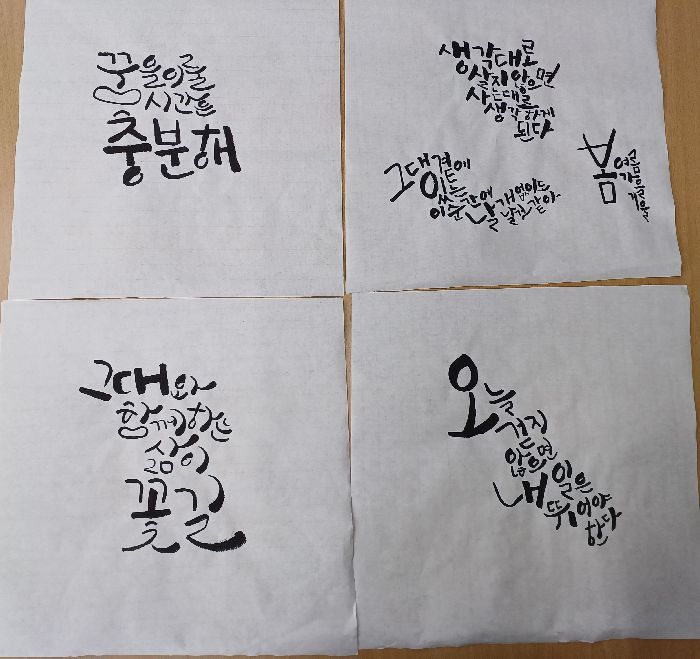 꿈을이룰
시간은
충분해
생각대로
살지않으면
사는대로
생각하게
된다
그대곁에
있는
이순간에
날개없이도
날것같아
봄
여름
가을
겨울
그대와
함께하는
삶이
꽃길
오늘
걷지
않으면
내일은
뛰어야
한다